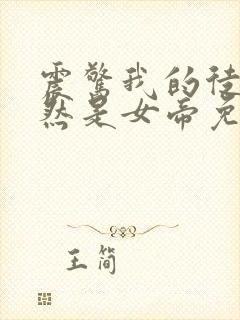 震惊我的徒
然是女帝免
王简